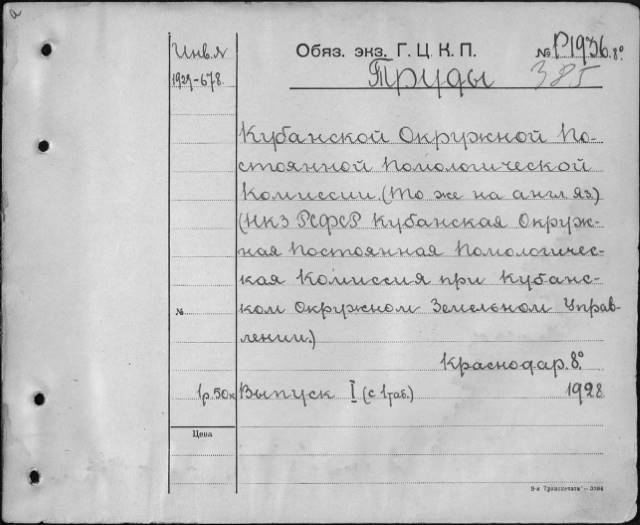 а
Инв. №
1929-678.
Обяз. экз. Г. Ц. К. П.
№ Р1936. 8°
385
Труды
Кубанской Окружной По-
стоянной Помологической
Комиссии. (То же на англ яз)
(НКЗ РСФСР Кубанская Окруж-
ная Постоянная Помологичес-
кая Комиссия при Кубанс-
№
ком Окружном Земельном Управ-
лении.)
Краснодар. 8°.
1р. 50к
Выпуск I (с 1 таб.)
1928
Цена